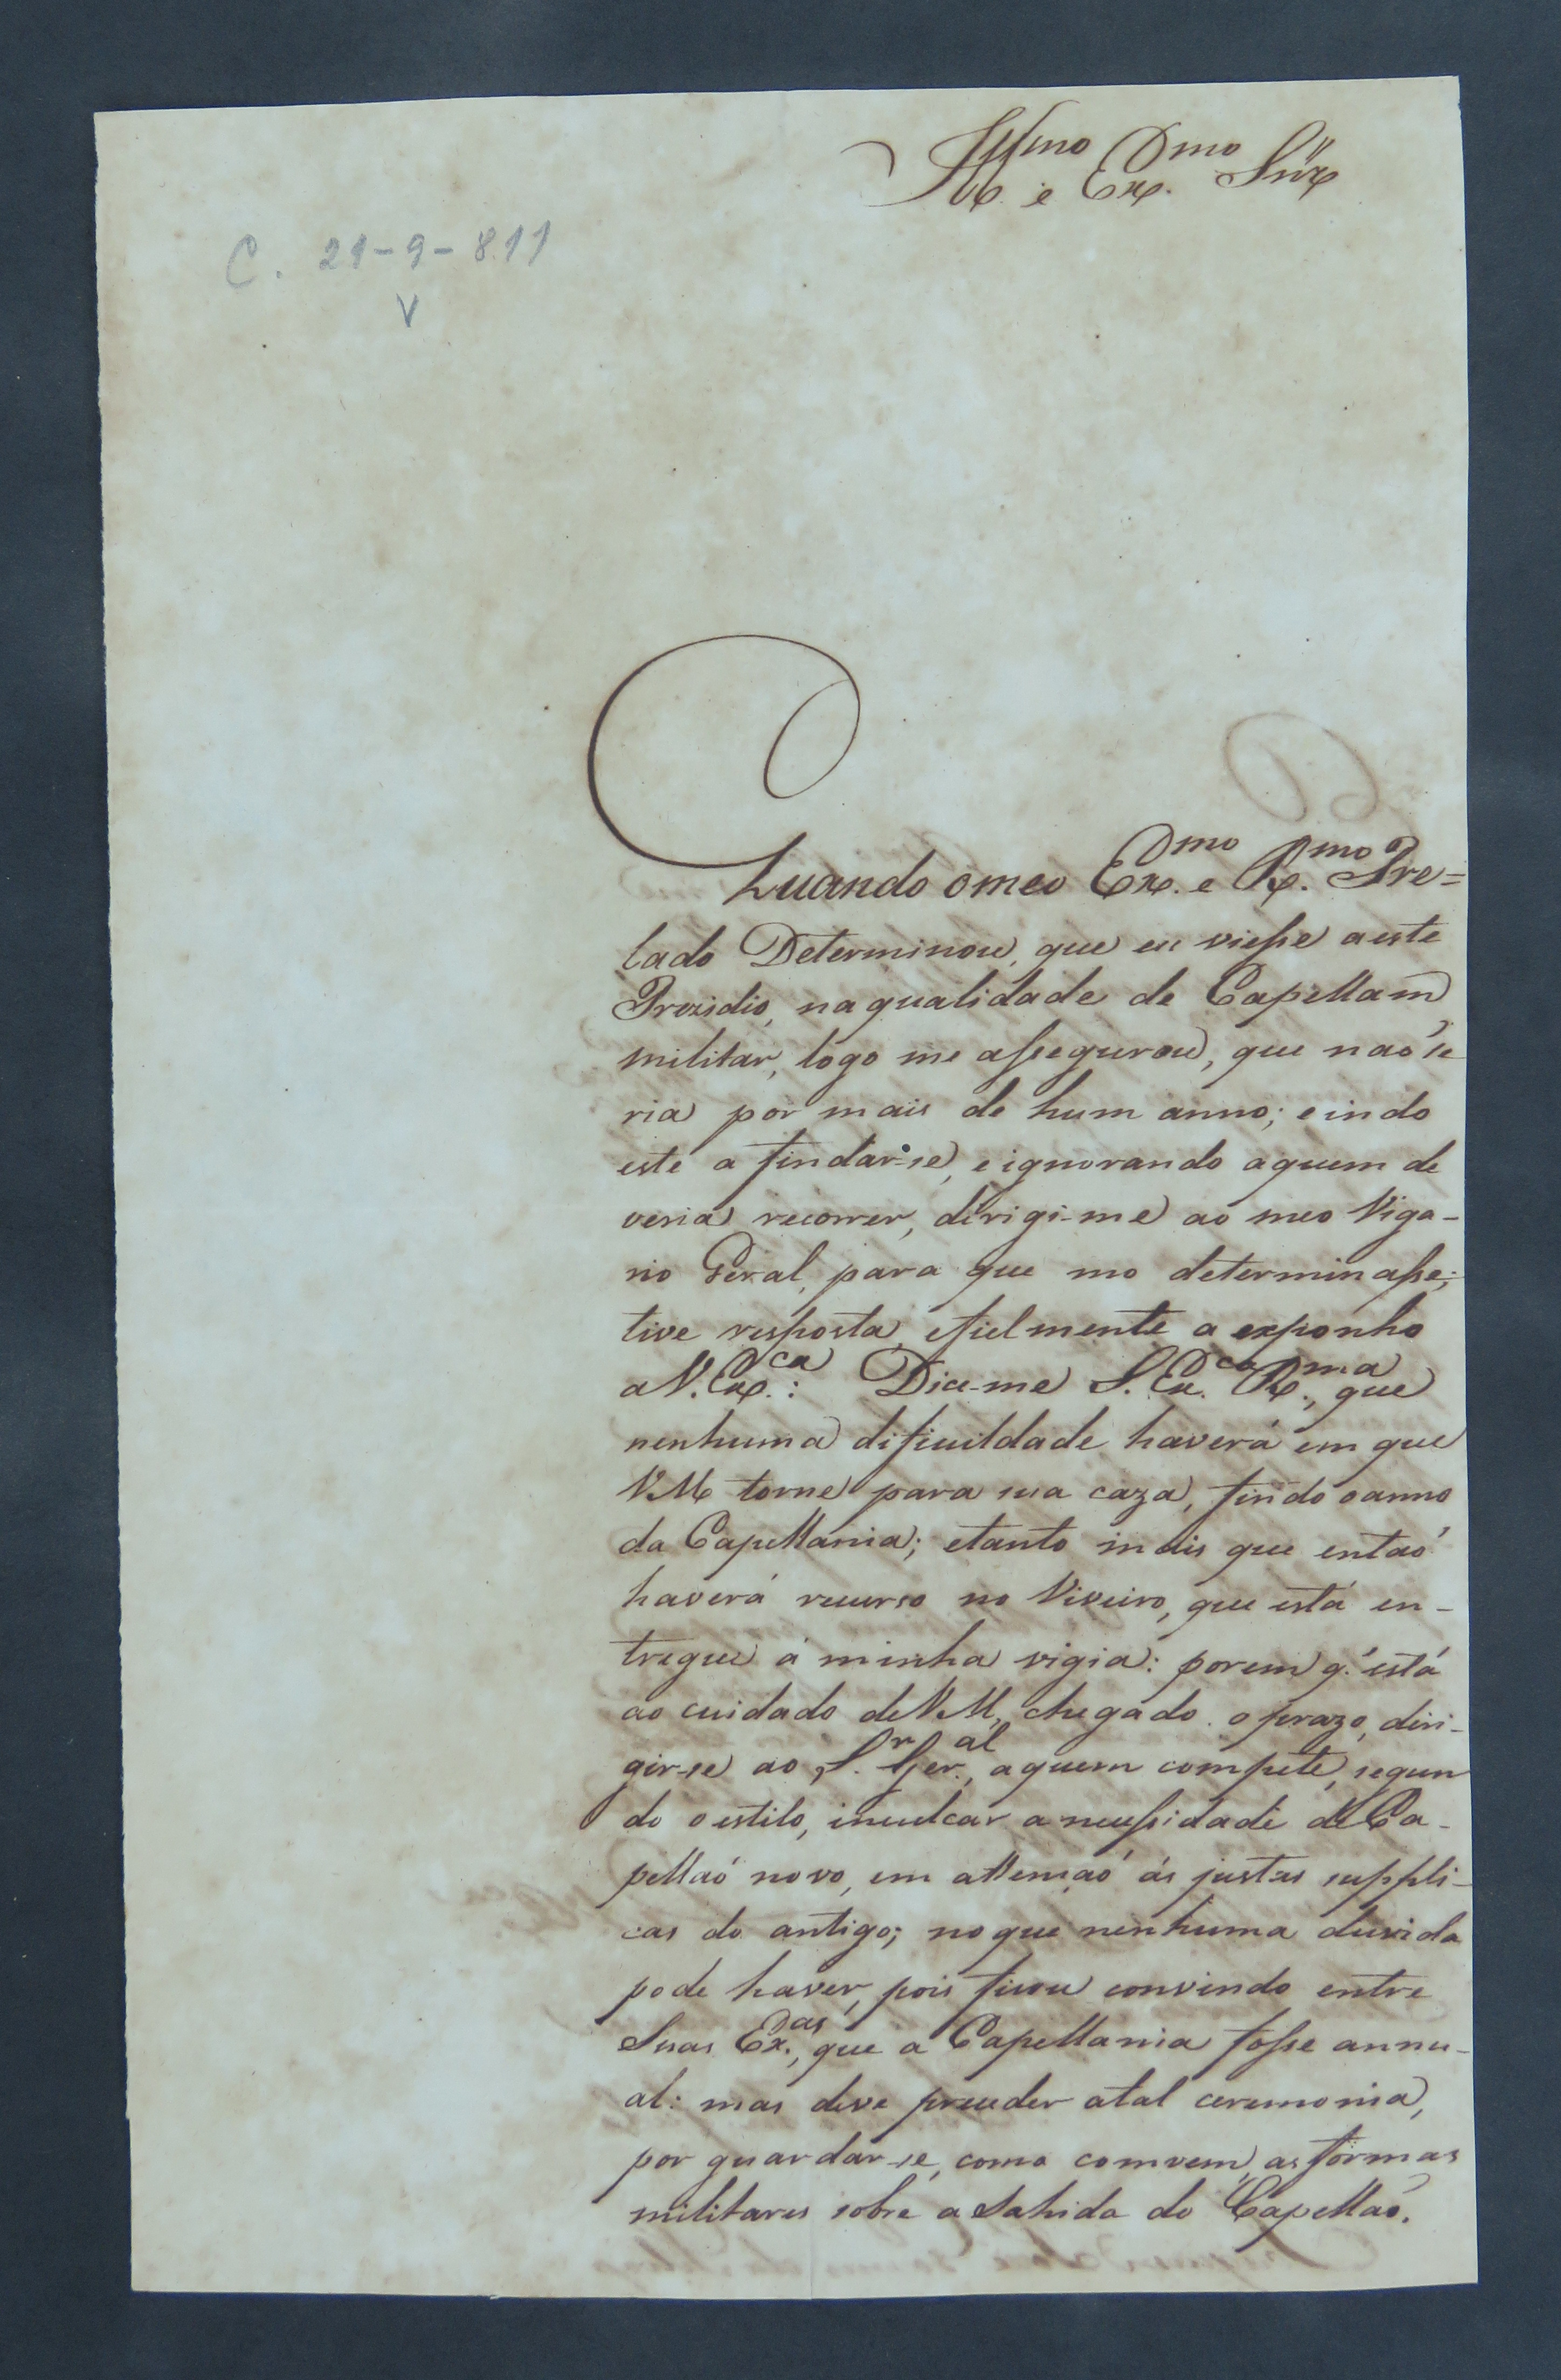 Ill.mo e Ex.mo Snr.
C. 21-9-811
V
Quando o meo Ex.mo e R.mo Pre=
lado Determinou, que eu viesse a este
Prezidio, na qualidade de Capellam
militar, logo me assegurou, que naõ se
ria por mais de hum anno; e indo
este a findar-se, e ignorando a quem de
veria recorrer, dirigi-me ao meo Viga-
rio Geral, para que mo determinasse;
tive resposta, e fielmente a exponho
a V. Ex.ca: Dice-me S. Ex.ca R.ma, que
nenhuma dificuildade haverá em que
VM torne para sua caza, findo o anno
da Capellania; e tanto mais que entaõ
haverá recurso no Viveiro, que está en-
tregue á minha vigia: porem q.' está
ao cuidado de VM, chegado o prazo, diri-
gir-se ao S.r Ger.al, a quem compete, segun
do o estilo, inculcar a necessidade de Ca-
pellaõ novo, em attençaõ ás justas suppli-
cas do antigo; no que nenhuma duvida
pode haver, pois ficou convindo entre
Suas Ex.as, que a Capellania fosse annu-
al: mas deve preceder a tal ceremonia,
por guardar-se, como comvem, as formas
militares sobre a Sahida do Capellaõ.